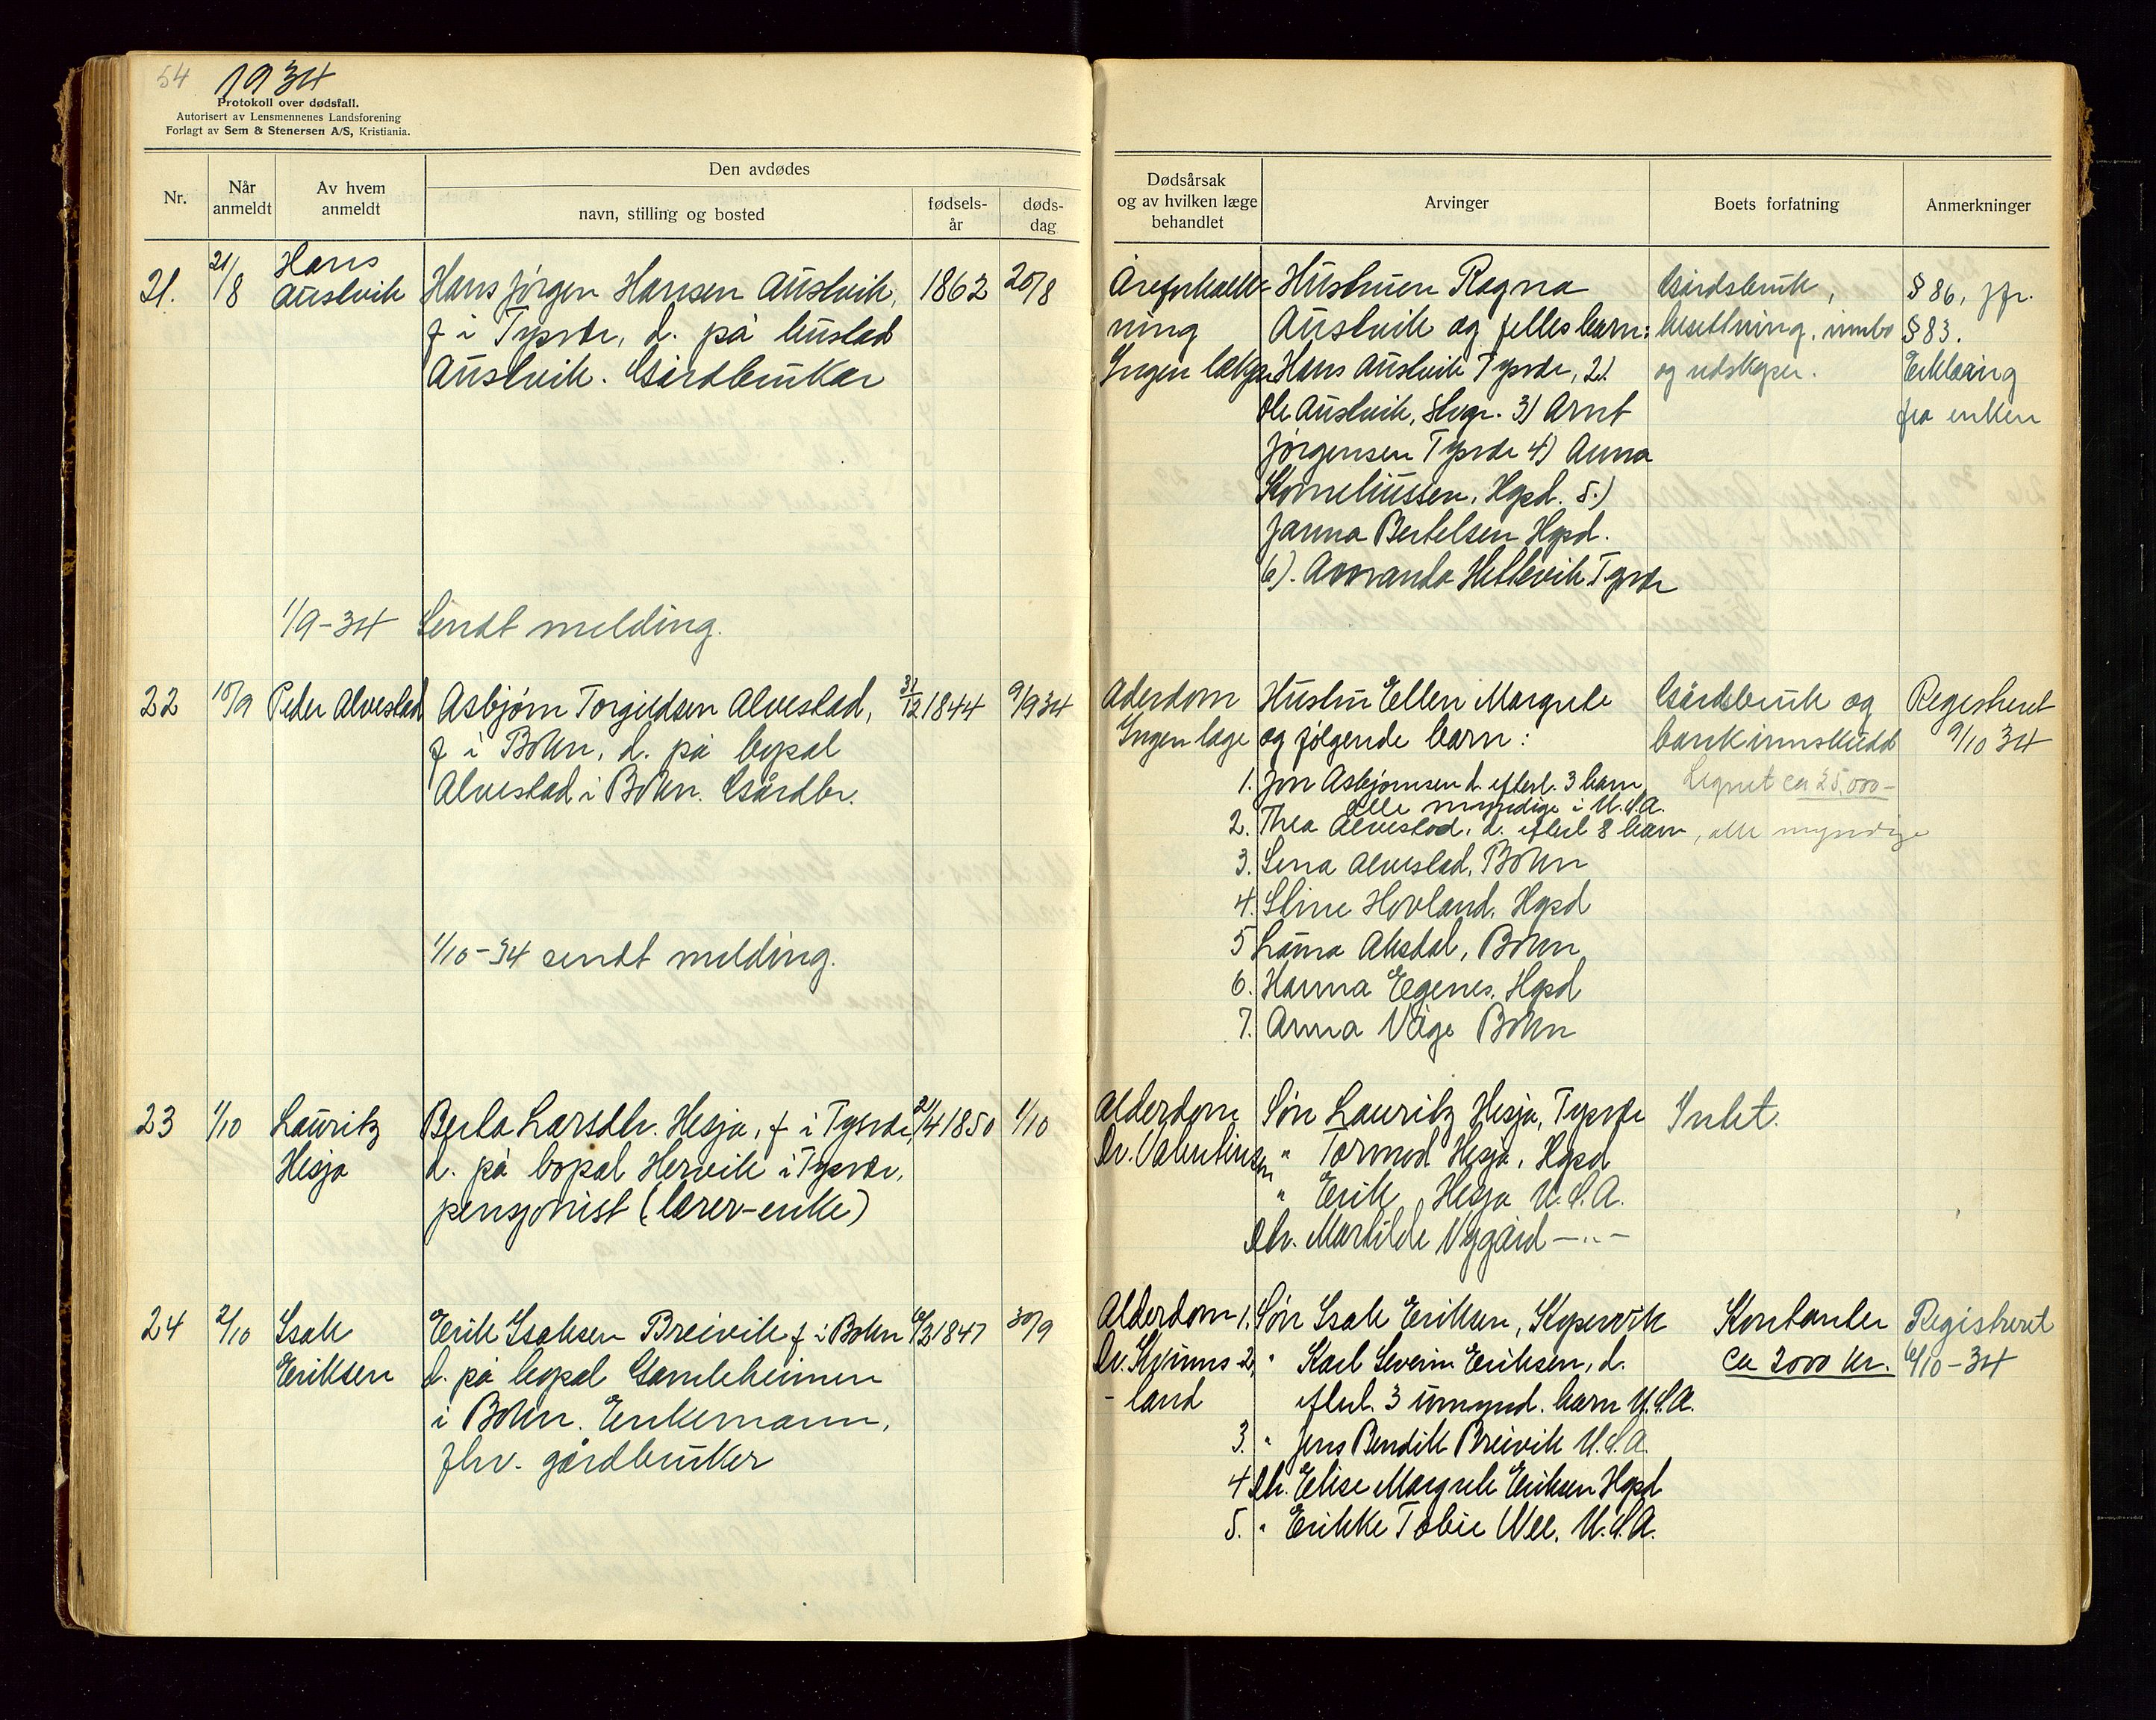 54
1934
Protokoll over dødsfall.
Autorisert av Lensmennenes Landsforening
Forlagt av Sem & Stenersen A/S, Kristiania.
Nr.
Når anmeldt
Av hvem anmeldt
Den avdødes
navn, stilling og bosted
fødsels-år
døds-dag
Dødsårsak og av hvilken læge behandlet
Arvinger
Boets forfatning
Anmerkninger
21.
21/8
Hans
Austvik
Hans Jørgen Hansen Austvik,
f i Tysvær, d. på bustad
Austvik. Gårdbruker
1862
20/8
Åreforkalk-
ning
Ingen læge
Hustruen Ragna
Austvik og felles barn:
Hans Austvik Tysvær, 2)
Ole Austvik, Stvgr. 3) Arnt
Jørgensen Tysvær 4) Anna
Korneliussen, Hgsd. 5.)
Janna Bertelsen Hgsd.
6). Amanda Hettevik Tysvær
Gårdsbruk,
besettning, innbo
og redskaper.
§ 86, jfr.
§ 83.
Erklæring
fra enken
1/9-34 Sendt melding.
22
10/9
Peder Alvestad
Asbjørn Torgildsen Alvestad,
f i Bokn, d. på bopæl
Alvestad i Bokn. Gårdbr.
31/12 1844
9/9 34
Aderdom
Ingen læge
Hustru Ellen Margrete
og følgende barn:
1. Jon Asbjørnsen d. efterl. 3 barn
alle myndige i U.S.A.
2. Thea Alvestad, d. efterl 8 barn, alle myndige
3. Lena Alvestad, Bokn
4. Stine Hovland, Hgsd
5 Laura Aksdal, Bokn
6. Hanna Egenes, Hgsd
7. Anna Våge Bokn
Gårdsbruk og
bankinnskudd
Lignet ca 25.000-
Registrert
9/10 34
1/10-34 sendt melding.
23
1/10
Lauritz
Hesja
Berta Larsdtr. Hesja, f i Tysvær
d. på bopæl Hervik i Tysvær,
pensjonist (lærer-enke)
21/4 1850
1/10
Alderdom
Dr. Valentinsen
Søn Lauritz Hesja, Tysvær
" Tormod Hesja, Hgsd
" Erik Hesja U.S.A.
Dtr. Martilde Nygård — " —
Intet.
24
2/10
Isak
Eriksen
Erik Isaksen Breivik f i Bokn
d. på bopæl Gamleheimen
i Bokn. Enkemann,
fhv. gårdbruker
1847
30/9
Alderdom
Dr. Kvinns-
land
1. Søn Isak Eriksen, Kopervik
2, " Karl Severin Eriksen, d.
efterl. 3 umynd. barn U.S.A.
3. " Jens Bendik Breivik U.S.A.
4 Dtr. Elise Margrete Eriksen Hgsd
5. " Erikke Tobie Wee. U.S.A.
Kontanter
ca 2000 kr.
Registrert
6/10-34